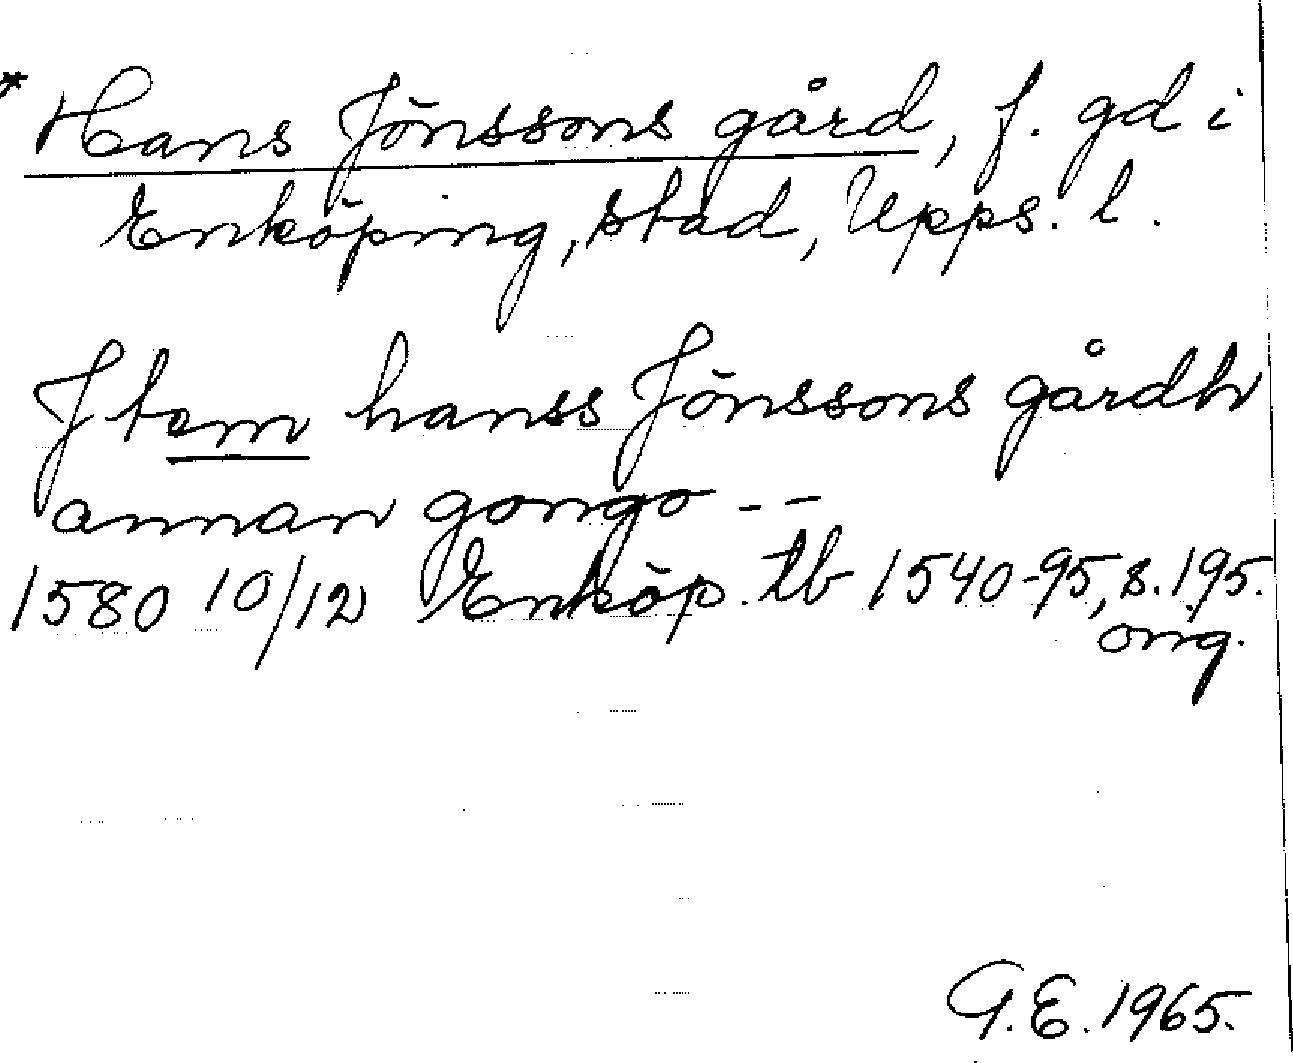 * Hans Jönssons gård, f. gd i
Enköping, stad, Upps. l.
Jtem hanss Jönssons gårdh
annan gongo - -
1580 10/12 Enköp. tb 1540-95, s. 195.
orig.
G.E. 1965.